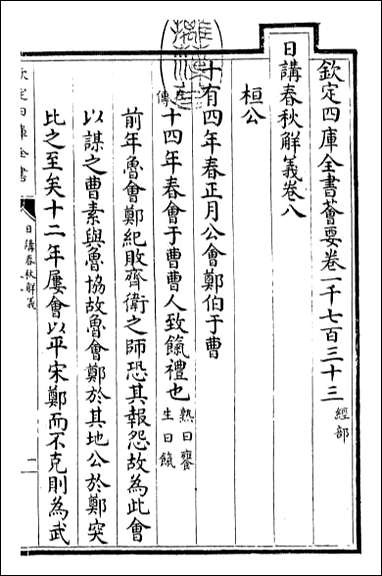 欽定四庫全書薈要卷一千七百三十三 經部
日講春秋解義卷八
桓公
十有四年春正月公會鄭伯于曹
左傳 十四年春會于曹曹人致餼禮也 熟曰饔 生曰餼
前年魯會鄭紀敗齊衛之師恐其報怨故為此會
以謀之曹素與魯協故魯會鄭於其地公於鄭突
比之至矣十二年屢會以平宋鄭而不克則為武
欽定四庫全書
日講春秋解義
一